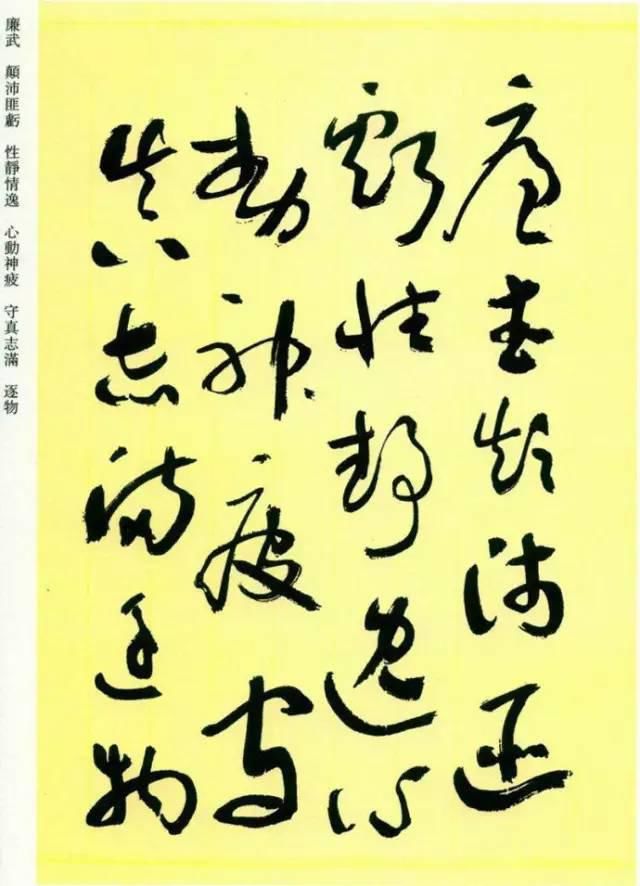 廉武顛沛匪
虧性靜逸心
動神疲守
真志滿逐物
廉武　顛沛匪虧　性靜情逸　心動神疲　守真志滿　逐物